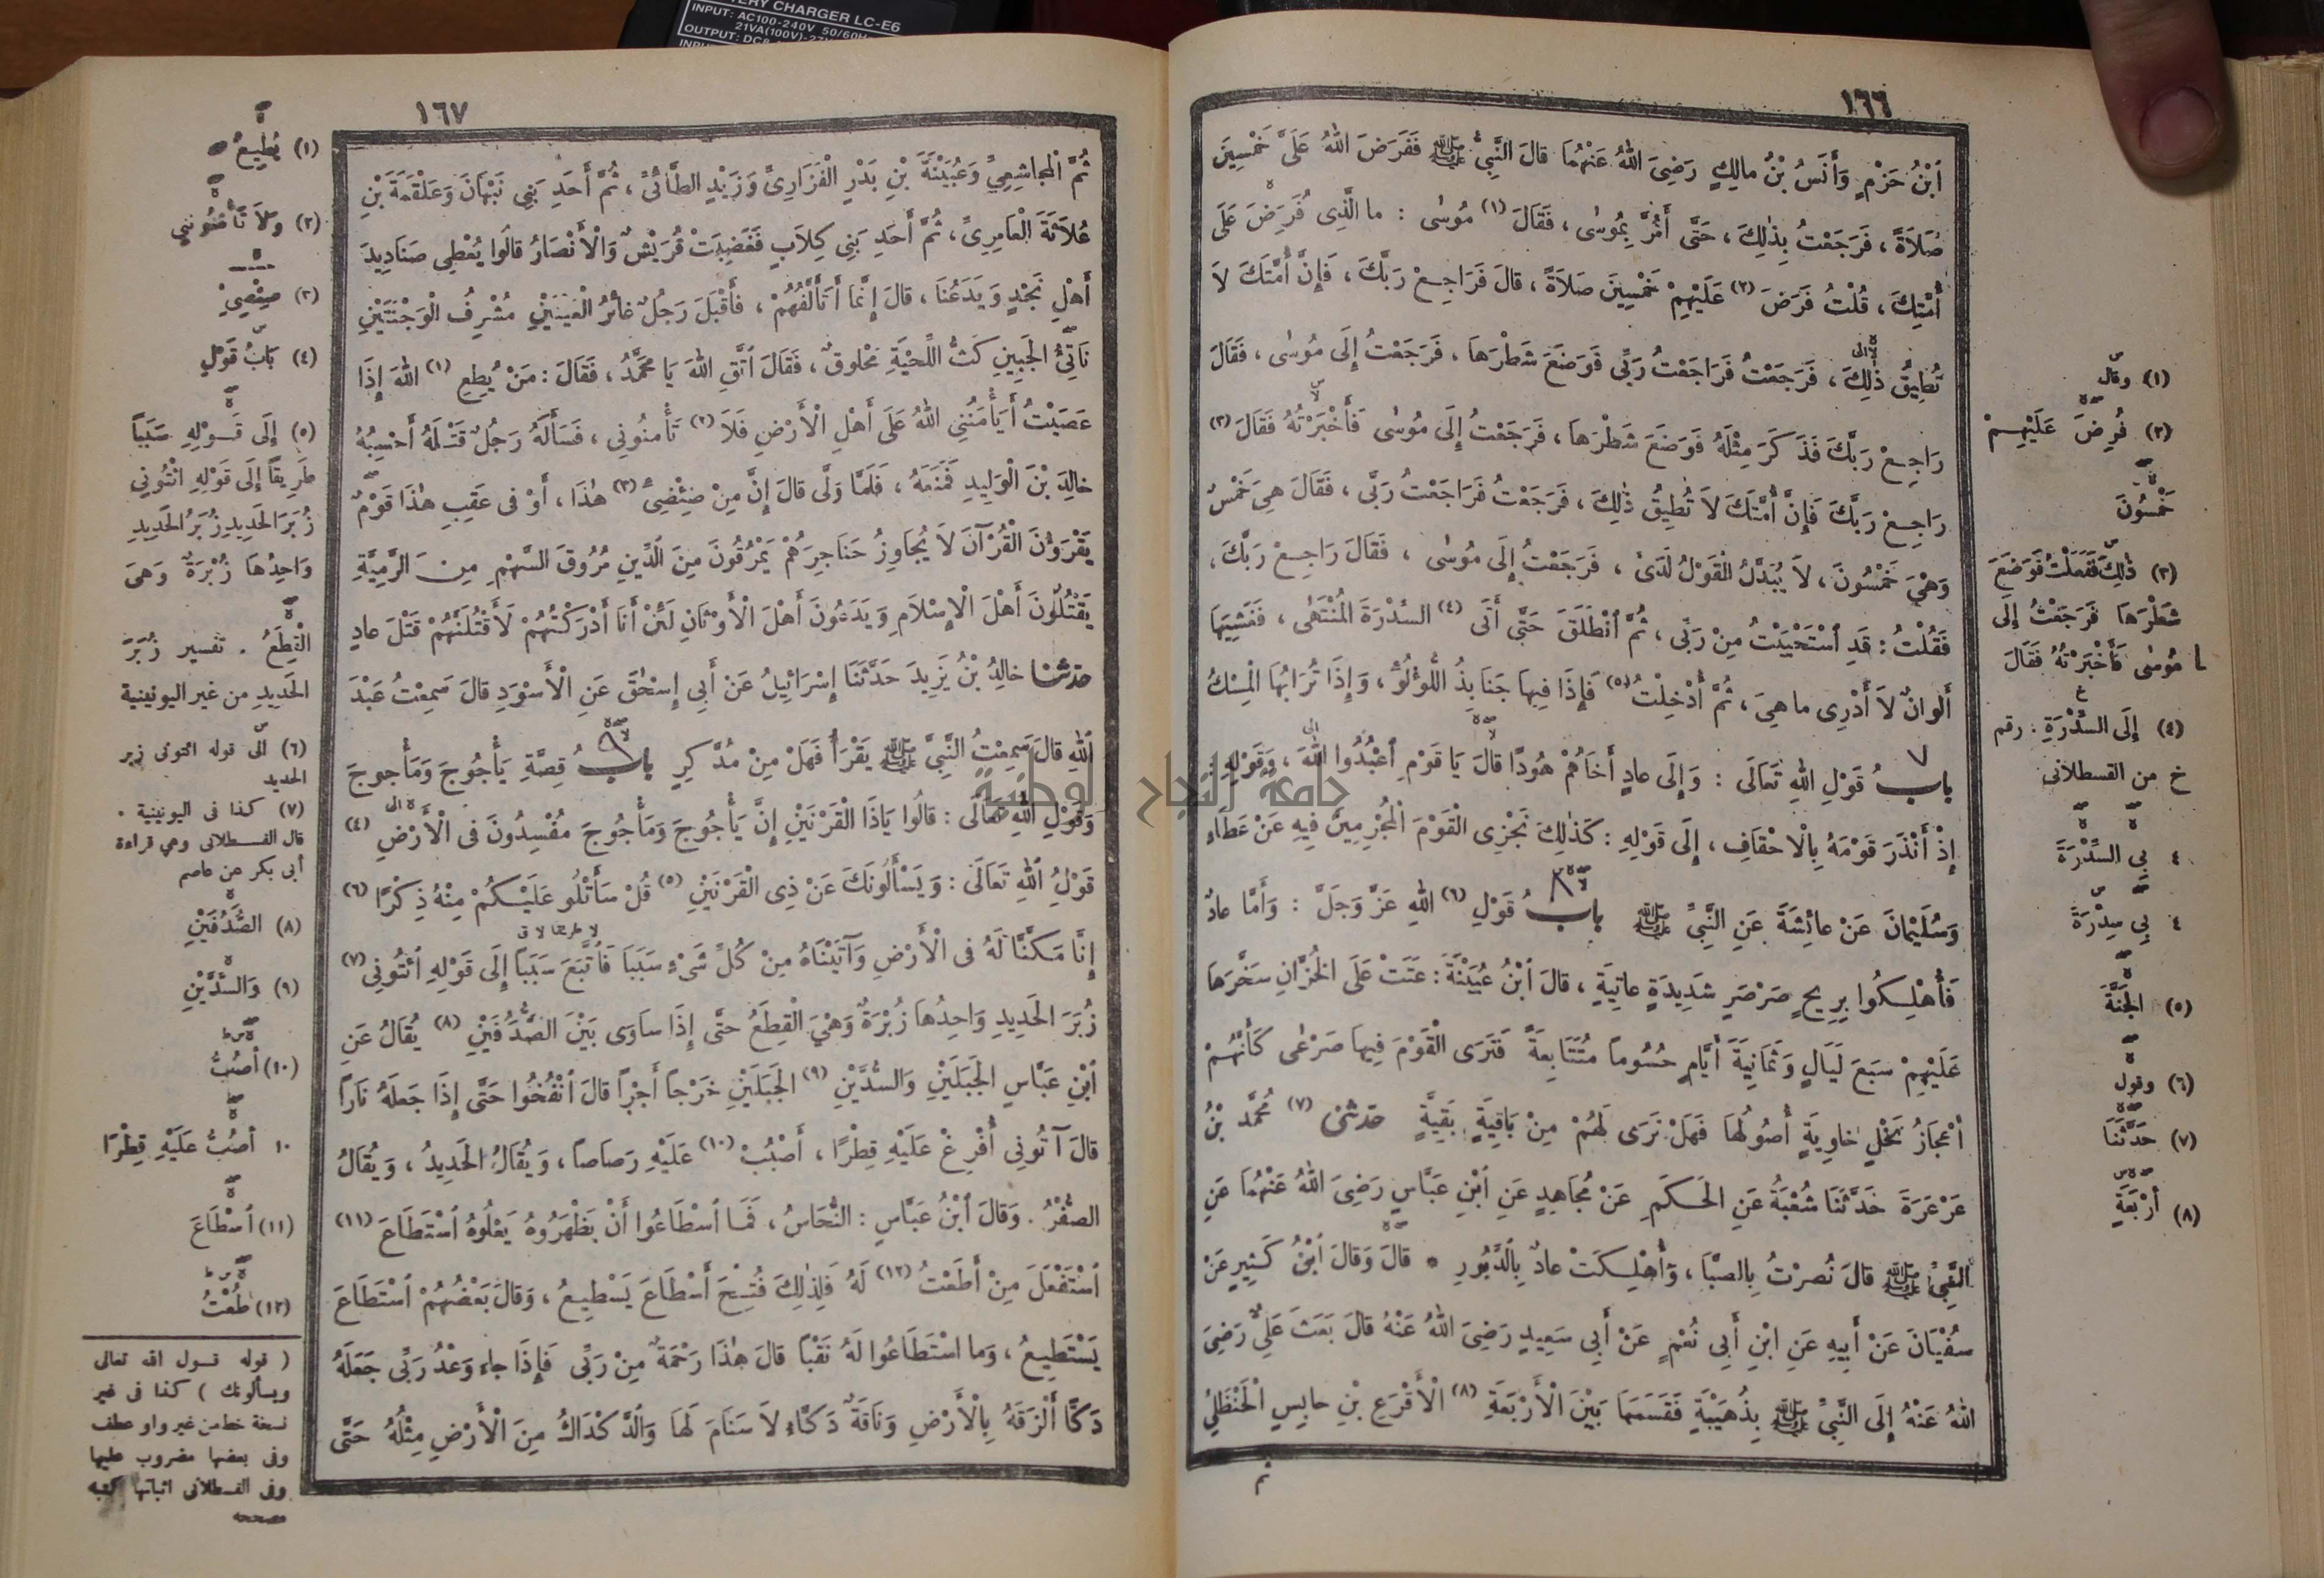 BATTERY CHARGER LC-E6
INPUT: AC100-240V 50/60H
21VA(100V)-27V
OUTPUT: DC8
١٦٦
ٱبْنُ حَزْمٍ وَأَنَسُ بْنُ مالِكٍ رَضِىَ اللهُ عَنْهُمَا قالَ النَّبِىُّ ﷺ فَفَرَضَ اللهُ عَلَىَّ خَمْسِينَ
صَلاَةً ، فَرَجَعْتُ بِذٰلِكَ ، حَتَّى أَمُرَّ بِمُوسٰى ، فَقَالَ (١) مُوسٰى : ما الَّذِى فُرِضَ عَلَى
أُمَّتِكَ ، قُلْتُ فَرَضَ (٢) عَلَيْهِمْ خَمْسِينَ صَلاَةً ، قالَ فَرَاجِعْ رَبَّكَ ، فَإِنَّ أُمَّتَكَ لاَ
تُطِيقُ ذٰلِكَ ، فَرَجَعْتُ فَرَاجَعْتُ رَبِّى فَوَضَعَ شَطْرَهَا ، فَرَجَعْتُ إِلَى مُوسٰى ، فَقَالَ
رَاجِعْ رَبَّكَ فَذَكَرَ مِثْلَهُ فَوَضَعَ شَطْرَهَا ، فَرَجَعْتُ إِلَى مُوسٰى فَأَخْبَرْتُهُ فَقَالَ (٣)
رَاجِعْ رَبَّكَ فَإِنَّ أُمَّتَكَ لاَ تُطِيقُ ذٰلِكَ ، فَرَجَعْتُ فَرَاجَعْتُ رَبِّى ، فَقَالَ هِيَ خَمْسٌ
وَهْيَ خَمْسُونَ ، لاَ يُبَدَّلُ الْقَوْلُ لَدَىَّ ، فَرَجَعْتُ إِلَى مُوسٰى ، فَقَالَ رَاجِعْ رَبَّكَ ،
فَقُلْتُ : قَدِ ٱسْتَحْيَيْتُ مِنْ رَبِّى ، ثُمَّ ٱنْطَلَقَ حَتَّى أَتَى (٤) السِّدْرَةَ الْمُنْتَهٰى ، فَغَشِيَهَا
أَلْوانٌ لاَ أَدْرِى ما هِيَ ، ثُمَّ أُدْخِلْتُ (٥) فَإِذَا فِيهَا جَنَابِذُ اللُّؤْلُؤِ ، وَإِذَا تُرَابُهَا الْمِسْكُ
بابُ قَوْلِ اللهِ تَعَالَى : وَإِلَى عادٍ أَخَاهُمْ هُودًا قالَ يَا قَوْمِ ٱعْبُدُوا اللهَ ، وَقَوْلِهِ
إِذْ أَنْذَرَ قَوْمَهُ بِالْأَحْقَافِ ، إِلَى قَوْلِهِ : كَذٰلِكَ نَجْزِى الْقَوْمَ الْمُجْرِمِينَ فِيهِ عَنْ عَطَاءٍ
وَسُلَيْمَانَ عَنْ عائِشَةَ عَنِ النَّبِىِّ ﷺ بابُ قَوْلِ (٦) اللهِ عَزَّ وَجَلَّ : وَأَمَّا عادٌ
فَأُهْلِكُوا بِرِيحٍ صَرْصَرٍ شَدِيدَةٍ عاتِيَةٍ ، قالَ ٱبْنُ عُيَيْنَةَ : عَتَتْ عَلَى الْخُزَّانِ سَخَّرَهَا
عَلَيْهِمْ سَبْعَ لَيَالٍ وَثَمَانِيَةَ أَيَّامٍ حُسُومًا مُتَتَابِعَةً فَتَرَى الْقَوْمَ فِيهَا صَرْعٰى كَأَنَّهُمْ
أَعْجَازُ نَخْلٍ خاوِيَةٍ أُصُولُهَا فَهَلْ تَرَى لَهُمْ مِنْ بَاقِيَةٍ بَقِيَّةٍ حَدَّثَنِى (٧) مُحَمَّدُ بْنُ
عَرْعَرَةَ حَدَّثَنَا شُعْبَةُ عَنِ الْحَكَمِ عَنْ مُجَاهِدٍ عَنِ ٱبْنِ عَبَّاسٍ رَضِىَ اللهُ عَنْهُمَا عَنِ
النَّبِىِّ ﷺ قالَ نُصِرْتُ بِالصَّبَا ، وَأُهْلِكَتْ عادٌ بِالدَّبُورِ * قالَ وَقالَ ٱبْنُ كَثِيرٍ عَنْ
سُفْيَانَ عَنْ أَبِيهِ عَنِ ابْنِ أَبِى نُعْمٍ عَنْ أَبِى سَعِيدٍ رَضِىَ اللهُ عَنْهُ قالَ بَعَثَ عَلِىٌّ رَضِىَ
اللهُ عَنْهُ إِلَى النَّبِىِّ ﷺ بِذُهَيْبَةٍ فَقَسَمَهَا بَيْنَ الْأَرْبَعَةِ (٨) الْأَقْرَعِ بْنِ حابِسٍ الْحَنْظَلِىِّ
(١) وقال
(٢) فُرِضَ عَلَيْهِمْ
خَمْسُونَ
(٣) ذٰلِكَ فَفَعَلْتُ فَوَضَعَ
شَطْرَهَا فَرَجَعْتُ إِلَى
مُوسٰى فَأَخْبَرْتُهُ فَقَالَ
(٤) إِلَى السِّدْرَةِ : رقم
خ من القسطلانى
٤ بِى السِّدْرَةَ
٤ بِى سِدْرَةَ
(٥) الجَنَّةَ
(٦) وقول
(٧) حَدَّثَنَا
(٨) أَرْبَعَةٍ
١٦٧
ثُمَّ الْمجاشِعِىِّ وَعُيَيْنَةَ بْنِ بَدْرٍ الْفَزَارِىِّ وَزَيْدٍ الطَّائىِّ ، ثُمَّ أَحَدِ بَنِى نَبْهَانَ وَعَلْقَمَةَ بْنِ
عُلاَثَةَ الْعَامِرِىِّ ، ثُمَّ أَحَدِ بَنِى كِلاَبٍ فَغَضِبَتْ قُرَيْشٌ وَالْأَنْصَارُ قالُوا يُعْطِى صَنَادِيدَ
أَهْلِ نَجْدٍ وَيَدَعُنَا ، قالَ إِنَّمَا أَتَأَلَّفُهُمْ ، فَأَقْبَلَ رَجُلٌ غائرُ الْعَيْنَيْنِ مُشْرِفُ الْوَجْنَتَيْنِ
نَاتِئُ الجَبِينِ كَثُّ اللِّحْيَةِ مَحْلوقٌ ، فَقَالَ ٱتَّقِ اللهَ يَا مُحَمَّدُ ، فَقَالَ : مَنْ يُطِعِ (١) اللهَ إِذَا
عَصَيْتُ أَيَأْمَنُنِى اللهُ عَلَى أَهْلِ الْأَرْضِ فَلاَ (٢) تَأْمنُونِى ، فَسَأَلَهُ رَجُلٌ قَتْلَهُ أَحْسِبُهُ
خالِدَ بْنَ الْوَلِيدِ فَمَنَعَهُ ، فَلَمَّا وَلَّى قالَ إِنَّ مِنْ ضِئْضِئِ (٣) هٰذَا ، أَوْ فى عَقِبِ هٰذَا قَوْمٌ
يَقْرَؤُنَ الْقُرْآنَ لاَ يُجَاوِزُ حَنَاجِرَهُمْ يَمْرُقُونَ مِنَ الدِّينِ مُرُوقَ السَّهْمِ مِنَ الرَّمِيَّةِ
يَقْتُلُونَ أَهْلَ الْإِسْلاَمِ وَيَدَعُونَ أَهْلَ الْأَوْثَانِ لَئِنْ أَنَا أَدْرَكْتُهُمْ لَأَقْتُلَنَّهُمْ قَتْلَ عادٍ
حَدَّثَنَا خالِدُ بْنُ يَزِيدَ حَدَّثَنَا إِسْرَائِيلُ عَنْ أَبِى إِسْحٰقَ عَنِ الْأَسْوَدِ قالَ سَمِعْتُ عَبْدَ
اللهِ قالَ سَمِعْتُ النَّبِىَّ ﷺ يَقْرَأُ فَهَلْ مِنْ مُدَّكِرٍ بابُ قِصَّةِ يَأْجُوجَ وَمَأْجوجَ
وَقَوْلِ اللهِ تَعَالَى : قالُوا يَاذَا الْقَرْنَيْنِ إِنَّ يَأْجُوجَ وَمَأْجُوجَ مُفْسِدُونَ فى الْأَرْضِ (٤)
قَوْلُ اللهِ تَعَالَى : وَيَسْأَلُونَكَ عَنْ ذِى الْقَرْنَيْنِ (٥) قُلْ سَأَتْلُو عَلَيْكُمْ مِنْهُ ذِكْرًا (٦)
إِنَّا مَكَّنَّا لَهُ فى الْأَرْضِ وَآتَيْنَاهُ مِنْ كُلِّ شَىْءٍ سَبَبًا فَاتَّبَعَ سَبَبًا إِلَى قَوْلِهِ ٱئْتُونِى (٧)
زُبَرَ الْحَدِيدِ وَاحِدُهَا زُبْرَةٌ وَهْيَ الْقِطَعُ حتَّى إِذَا ساوَى بَيْنَ الصَّدَفَيْنِ (٨) يُقَالُ عَنِ
ٱبْنِ عَبَّاسٍ الجَبَلَيْنِ وَالسُّدَّيْنِ (٩) الجَبَلَيْنِ خَرْجاً أَجْراً قالَ ٱنْفُخُوا حَتَّى إِذَا جَعَلَهُ نَاراً
قالَ آتُونِى أُفْرِغْ عَلَيْهِ قِطْرًا ، أَصْبُبْ (١٠) عَلَيْهِ رَصَاصاً ، وَيُقَالُ الحَدِيدُ ، وَيُقَالُ
الصُّفْرُ . وَقالَ ٱبْنُ عَبَّاسٍ : النُّحَاسُ ، فَمَا ٱسْطَاعُوا أَنْ يَظْهَرُوهُ يَعْلُوهُ ٱسْتَطَاعَ (١١)
ٱسْتَفْعَلَ مِنْ أَطَعْتُ (١٢) لَهُ فَلِذٰلِكَ فُتِحَ أَسْطَاعَ يَسْطِيعُ ، وَقالَ بَعْضُهُمْ ٱسْتَطَاعَ
يَسْتَطِيعُ ، وَما اسْتَطَاعُوا لَهُ نَقْبًا قالَ هٰذَا رَحْمَةٌ مِنْ رَبِّى فَإِذَا جاءَ وَعْدُ رَبِّى جَعَلَهُ
دَكًّا أَلْزَقَهُ بِالْأَرْضِ وَنَاقَةٌ دَكَّاءُ لاَ سَنَامَ لَهَا وَالدَّكْدَاكُ مِنَ الْأَرْضِ مِثْلُهُ حَتَّى
(١) يُطِيعُ
(٢) وَلاَ تَأْمَنُونِى
(٣) صِئْصِئِ
(٤) بَابُ قَوْلِ
(٥) إِلَى قَوْلِهِ سَبَباً
طَرِيقاً إِلَى قَوْلِهِ ائْتُونِى
زُبَرَ الحَدِيدِ زُبَرُ الحَدِيدِ
وَاحِدُهَا زُبْرَةٌ وَهىَ
الْقِطَعُ . تفسير زُبَرَ
الحَدِيدِ من غير اليونينية
(٦) الى قوله ائتونى زبر
الحديد
(٧) كذا فى اليونينية .
قال القسطلانى وهي قراءة
أبى بكر عن عاصم
(٨) الصُّدُفَيْنِ
(٩) وَالسَّدَّيْنِ
(١٠) أَصُبُّ
١٠ أصُبُّ عَلَيْهِ قِطْرًا
(١١) ٱسْطَاعَ
(١٢) طُعْتُ
( قوله قول الله تعالى
ويسألونك ) كذا فى غير
نسخة خط من غير واو عطف
وفى بعضها مضروب عليها
وفى القسطلانى اثباتها كتبه
مصححه
جامعة النجاح الوطنية